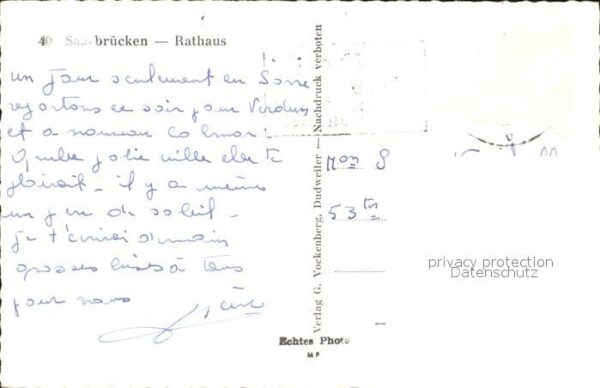 40 Saarbrücken — Rathaus
un jour seulement en Sarre
repartons ce soir pour Verdun
et a nouveau Colmar.
Quelle jolie ville elle te
plairait - il y a même
un peu de soleil -
je t'écrirai demain
grosses bises à tous
pour nous
Verlag G. Vockenberg, Dudweiler — Nachdruck verboten
Mon S
53 ter
privacy protection
Datenschutz
Echtes Photo
MP